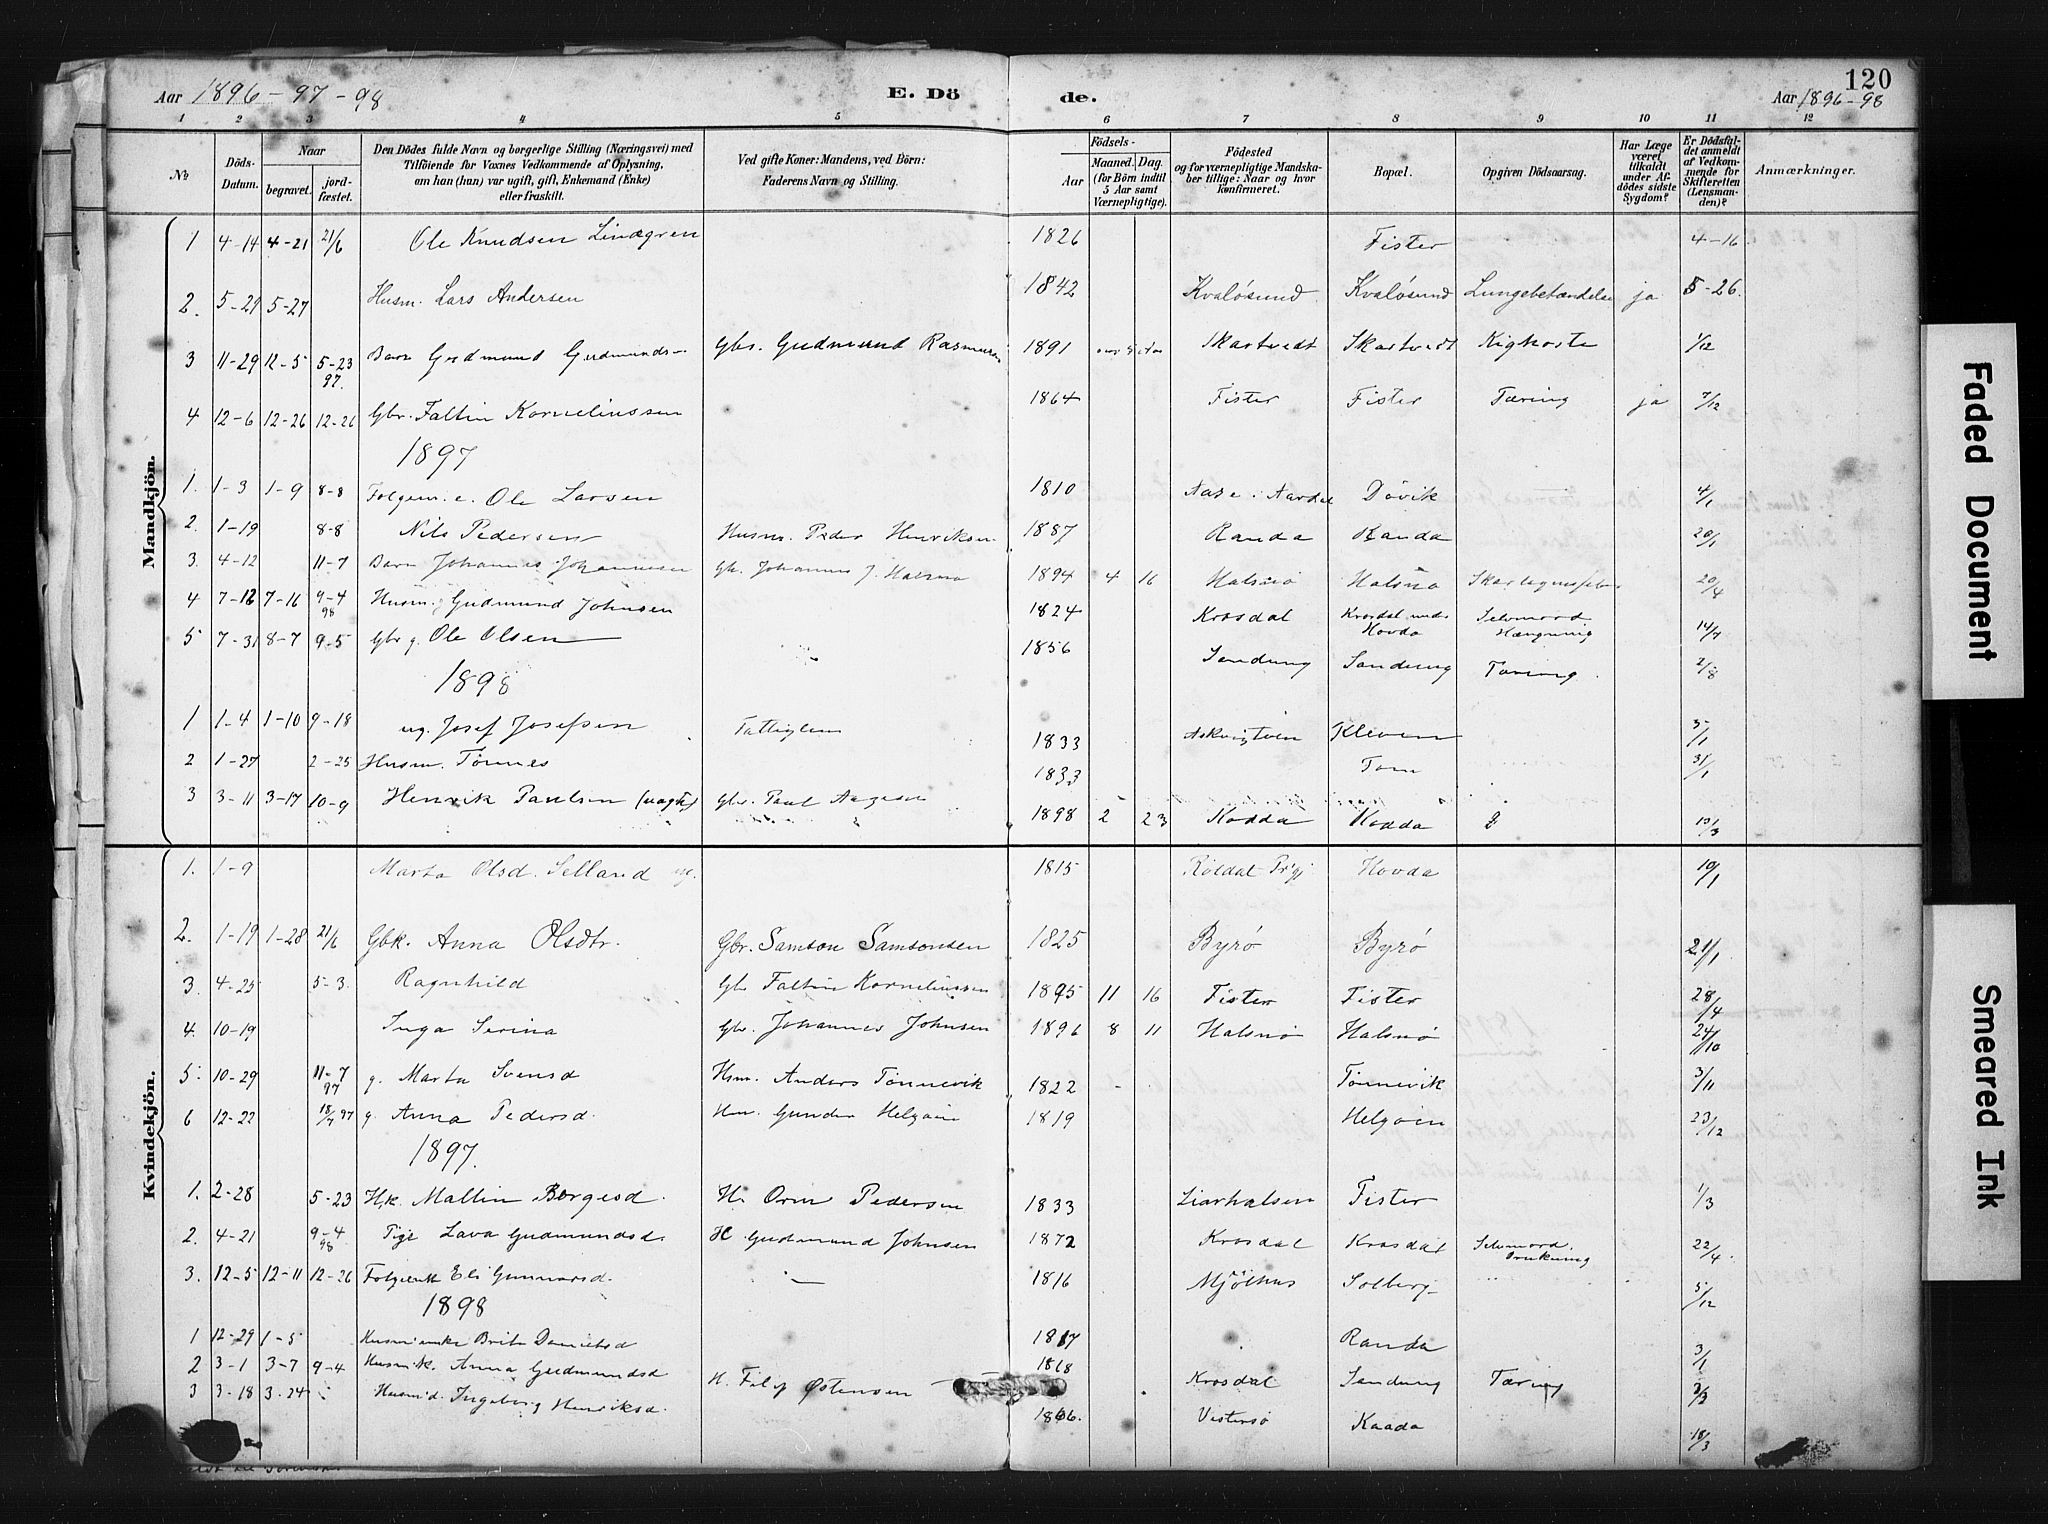 120
Aar 1896-97-98 E. Dö de. Aar 1896-98
1 2 3 4 5 6 7 8 9 10 11 12
No. Döds-Datum. Naar begravet. jordfæstet. Den Dödes fulde Navn og borgerlige Stilling (Næringsvei) med Tilföiende for Voxnes Vedkommende af Oplysning, om han (hun) var ugift, gift, Enkemand (Enke) eller fraskilt. Ved gifte Koner: Mandens, ved Börn: Faderens Navn og Stilling. Födsels- Aar Maaned. Dag. (for Börn indtil 5 Aar samt Værnepligtige). Födested og for værnepligtige Mandskaber tillige: Naar og hvor konfirmeret. Bopæl. Opgiven Dödsaarsag. Har Læge været tilkaldt under Afdödes sidste Sygdom? Er Dödsfaldet anmeldt af Vedkommende for Skifteretten (Lensmanden)? Anmærkninger.
Mandkjön.
1 4-14 4-21 21/6 Ole Knudsen Lindgren 1826 Fister 4-16
2. 5-21 5-27 Husm. Lars Andersen 1842 Kvaløsund Kvaløsund Lungebetændelse ja 5-26.
3 11-29 12-5 5-23 97. Barn Gudmund Gudmunds- Gbr. Gudmund Rasmusen 1891 Skartvedt Skartvedt Kighoste 1/12
4 12-6 12-26 12-26 Gbr. Faltin Korneliussen 1864 Fister Fister Tæring ja 7/12
1897
1. 1-3 1-9 8-8 Folgem. e. Ole Larsen 1810 Aase i Aardal Døvik 4/1
2. 1-19 8-8 Nils Pedersen Husm. Peder Henriksen 1887 Randa Randa 20/1
3. 4-12 11-7 Barn Johannes Johannesen Gb. Johannes J. Halsnø 1894 4 16 Halsnø Halsnø 20/4
4 7-12 7-16 9-4 98 Husm. Gudmund Johnsen 1824 Krosdal Krosdal under Hovda Selvmord Hængning 14/7
5 7-31 8-7 9-5 Gbr g. Ole Olsen 1856 Sandung Sandung Tæring. 2/8
1898
1 1-4 1-10 9-18 ug. Josef Josefsen Fattiglem 1833 Askvigtven Kleven 5/1
2 1-27 2-25 Husm. Tønnes 1833 Tom 31/1
3 3-11 3-17 10-9 Henrik Paulsen Gbr. Paul Aagesen 1898 2 23 Hodda Hodda
Kvindekjön.
1. 1-9 Marta Olsd. Selland ug. 1815 Røldal Hovda 10/1
2. 1-19 1-28 21/6 Gbk. Anna Olsdtr. Gbr. Samson Samsonsen 1825 Byrø Byrø 21/1
3. 4-25 5-3. Ragnhild Gbr Faltin Korneliussen 1895 11 16 Fister Fister 28/4
4. 10-19 Inga Serina Gbr. Johannes Johnsen 1896 8 11 Halsnø Halsnø 24/10
5. 10-29 11-7 97 g. Marta Svensd Hsm. Anders Tønnevik 1822 Tønnevik 3/11
6 12-22 18/7 97 g Anna Pedersd. Hm. Gunder Helgøin 1819 Helgøin 23/12
1897.
1. 2-28 5-23 H.k. Maltin Børgesd. H. Orm Pedersen 1833 Liarhalsen Fister 1/3
2. 4-21 9-4 98 Pige Lava Gudmundsd. H. Gudmund Johnsen 1872 Krosdal Krosdal Selvmord. Drukning 22/4.
3. 12-5 12-11 12-26 Folgeenk Eli Gunnarsd. 1816 Mjølhus Solberg 5/12
1898
1 12-29 1-5 Husm.enke Brite Danielsd 1817 Randa 3/1
2 3-1 3-7 9-4 Husmk. Anna Gudmundsd H. Filip Østensen 1868 Krosdal Sandung Tæring
3 3-18 3-24 Husmd. Ingeborg Henriksd. 1866. Vistersø Kaada 18/3
Faded Document
Smeared Ink